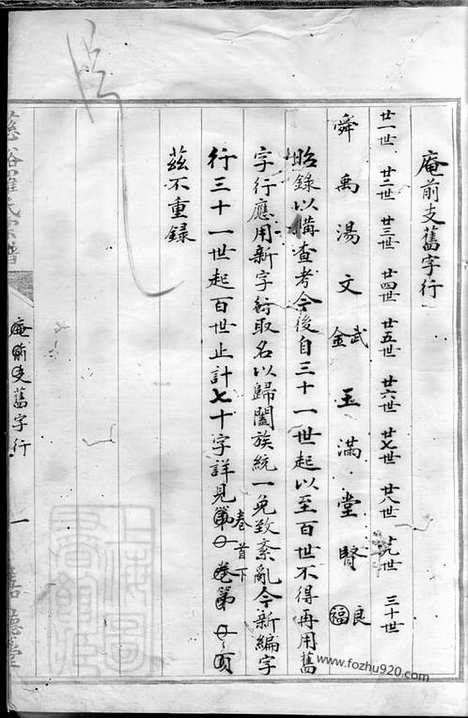 庵前支舊字行
廿一世 廿二世 廿三世 廿四世 廿五世 廿六世 廿七世 廿八世 廿九世 三十世
舜 禹 湯 文 武 玉 滿 堂 賢 良
錀 福
照錄以備查考今後自三十一世起以至百世不得再用舊
字行應用新字行取名以歸闔族統一免致紊亂今新編字
行三十一世起百世止計七十字詳見卷首下
茲不重錄
羅氏宗譜
庵前支舊字行
一
德堂
www.fozhu920.com